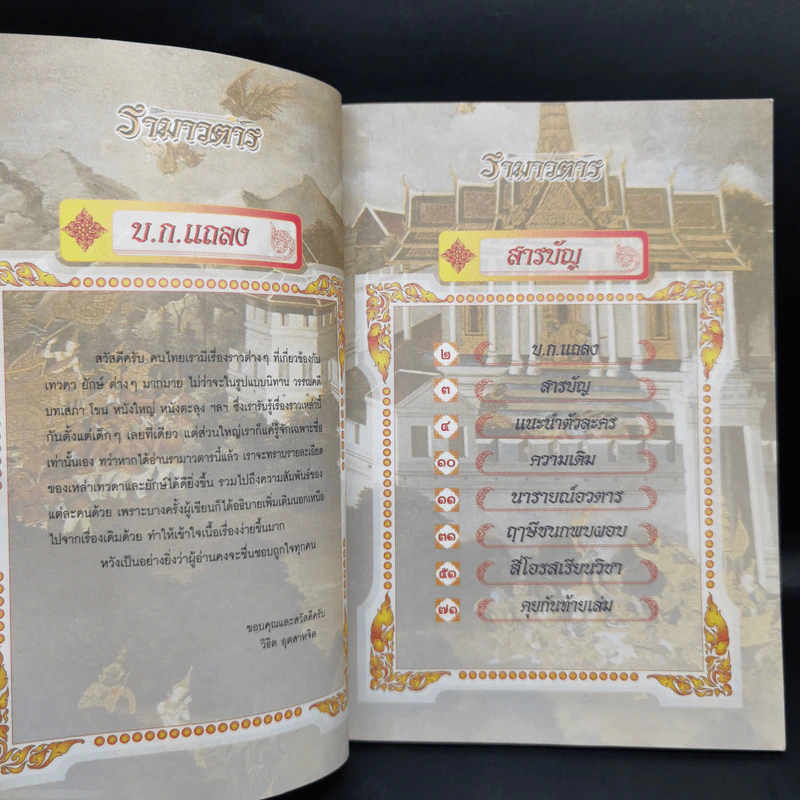 รามาวตาร
บ.ก.แถลง
สวัสดีครับ คนไทยเรามีเรื่องราวต่างๆ ที่เกี่ยวข้องกับ
เทวดา ยักษ์ ต่างๆ มากมาย ไม่ว่าจะในรูปแบบนิทาน วรรณคดี
บทเสภา โขน หนังใหญ่ หนังตะลุง ฯลฯ ซึ่งเรารับรู้เรื่องราวเหล่านี้
กันตั้งแต่เด็กๆ เลยทีเดียว แต่ส่วนใหญ่เราก็แค่รู้จักเฉพาะชื่อ
เท่านั้นเอง ทว่าหากได้อ่านรามาวตารนี้แล้ว เราจะทราบรายละเอียด
ของเหล่าเทวดาและยักษ์ได้ดียิ่งขึ้น รวมไปถึงความสัมพันธ์ของ
แต่ละคนด้วย เพราะบางครั้งผู้เขียนก็ได้อธิบายเพิ่มเติมนอกเหนือ
ไปจากเรื่องเดิมด้วย ทำให้เข้าใจเนื้อเรื่องง่ายขึ้นมาก
หวังเป็นอย่างยิ่งว่าผู้อ่านคงจะชื่นชอบถูกใจทุกคน
ขอบคุณและสวัสดีครับ
วิธิต อุตสาหจิต
รามาวตาร
สารบัญ
๒ บ.ก.แถลง
๓ สารบัญ
๔ แนะนำตัวละคร
๑๐ ความเดิม
๑๑ นารายณ์อวตาร
๓๑ ฤๅษีชนกพบผอบ
๕๑ สี่โอรสเรียนวิชา
๗๑ คุยกันท้ายเล่ม